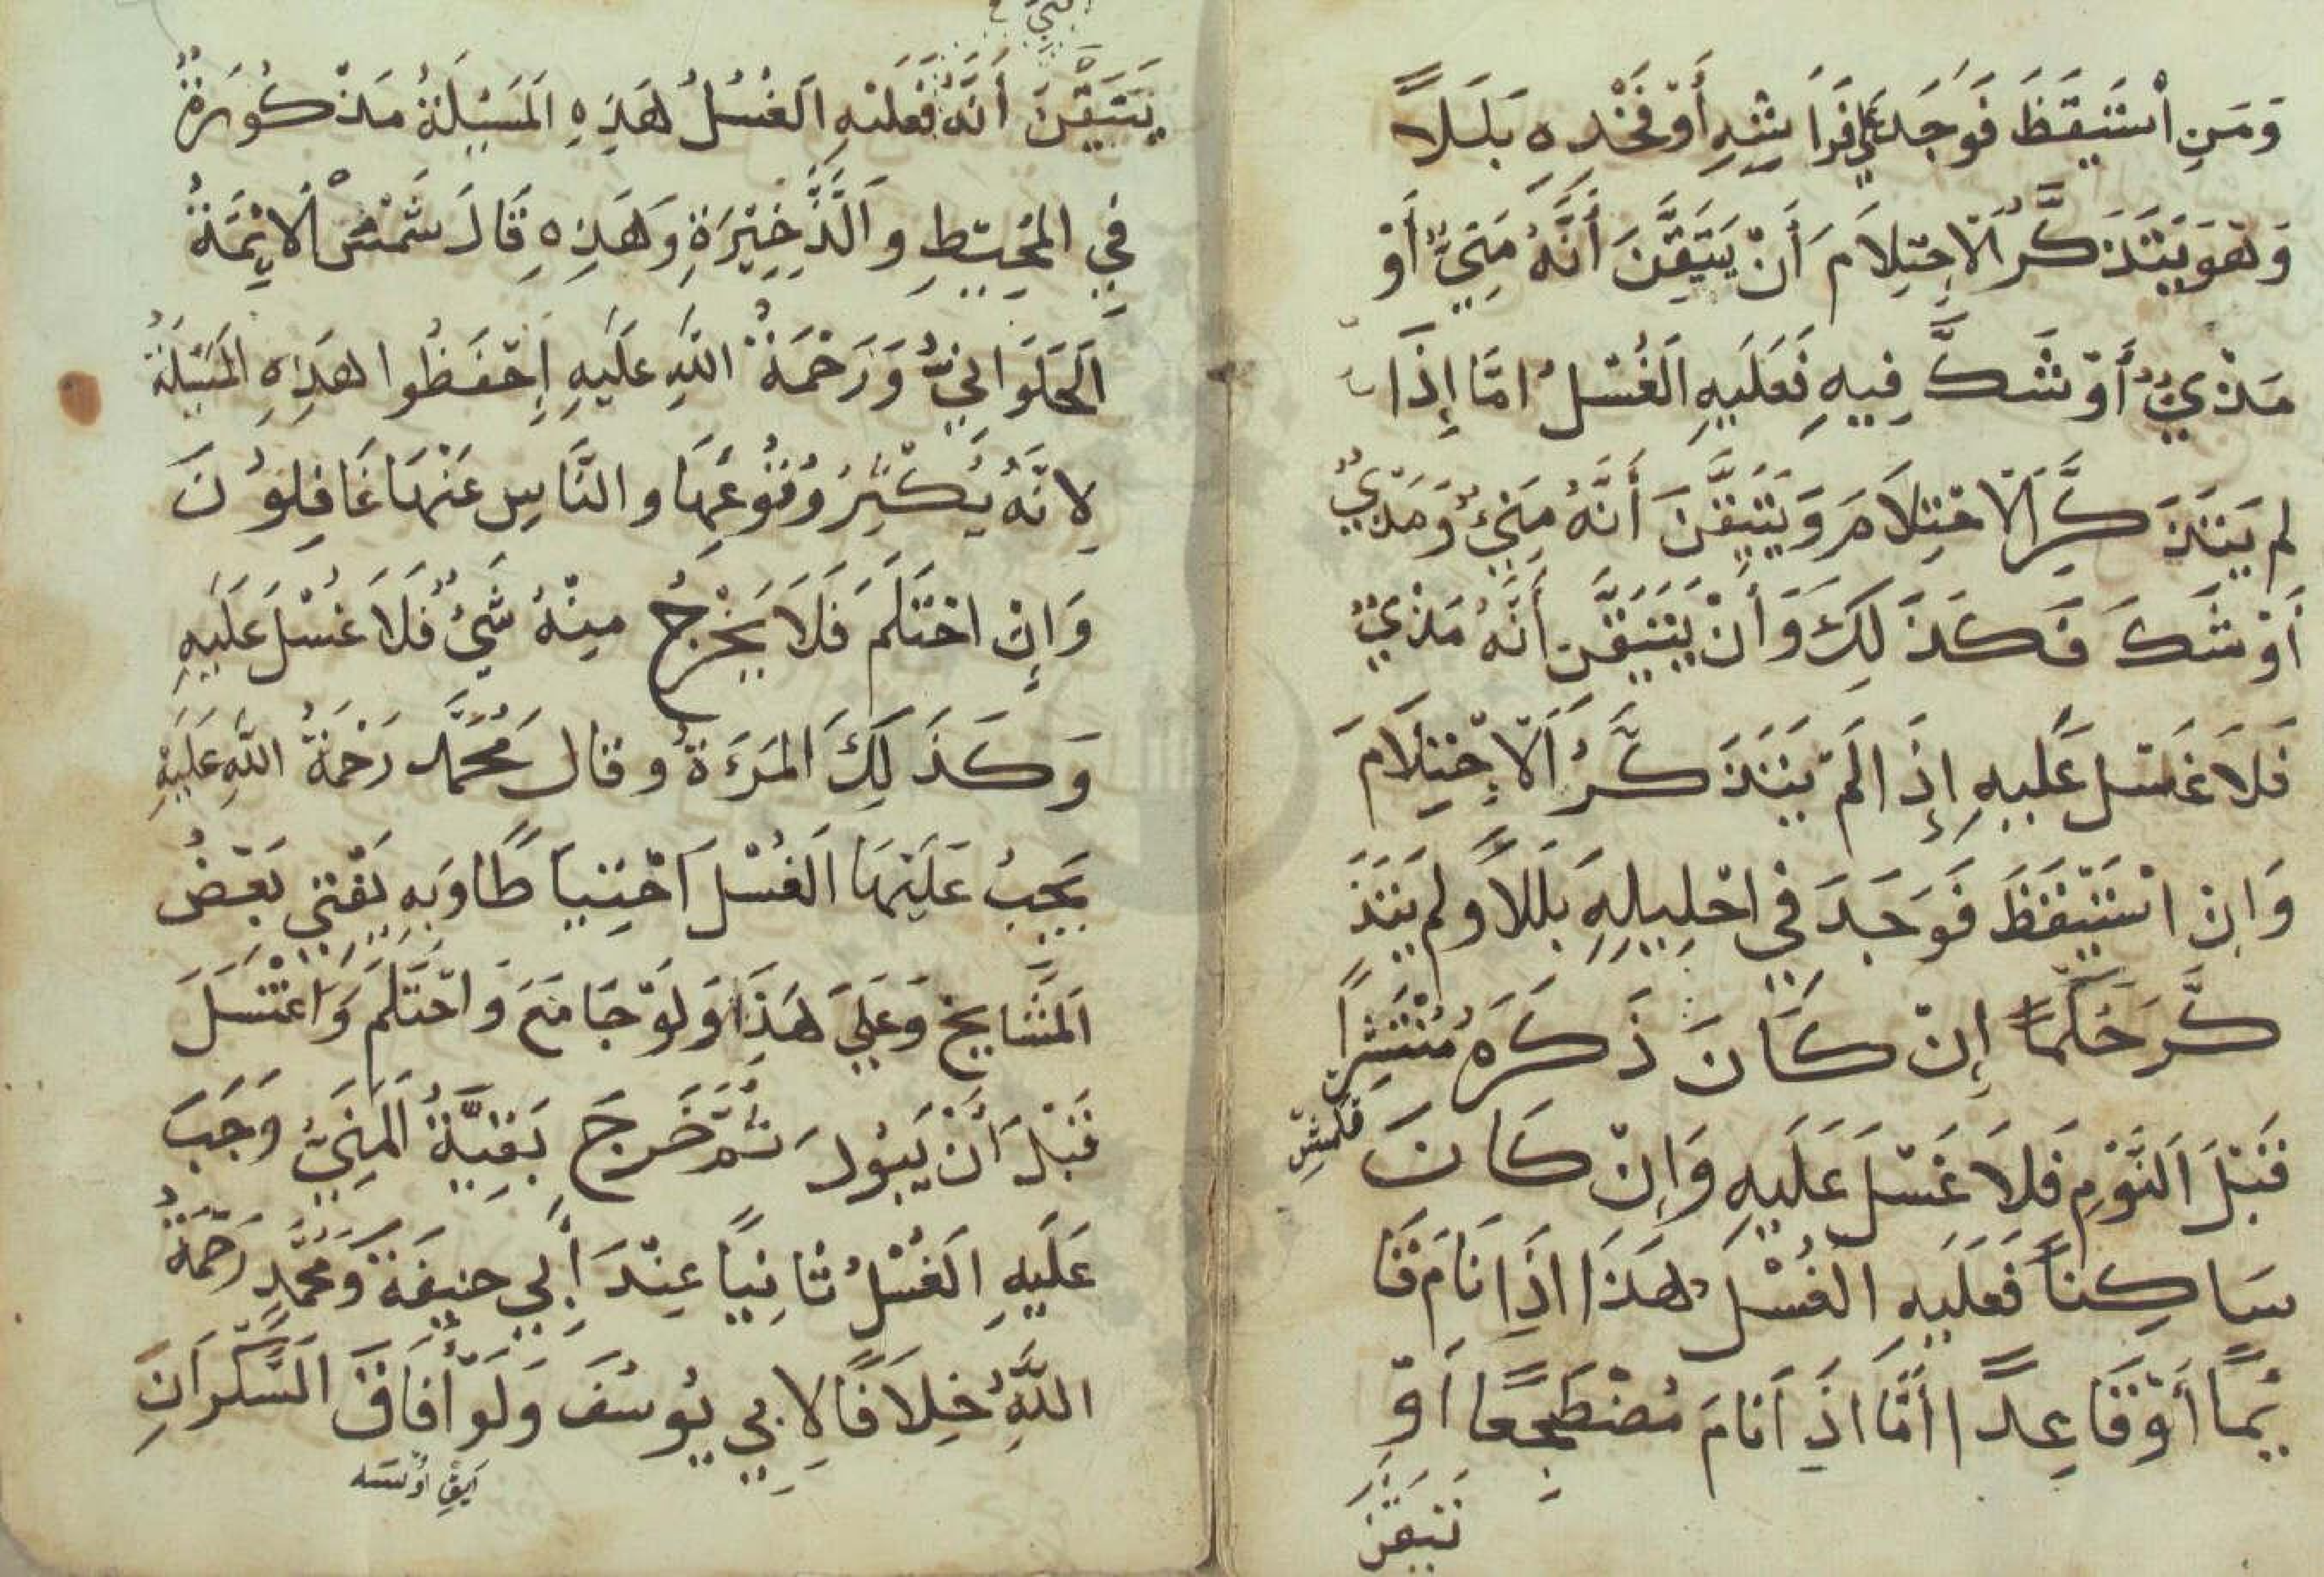 وَمَنِ اسْتَيْقَظَ فَوَجَدَ عَلَى فَرَاشِهِ أَوْ فَخْذِهِ بَلَلًا
وَهُوَ يَتَذَكَّرُ الْاِحْتِلَامَ أَنْ يَتَيَقَّنَ أَنَّهُ مَنِيٌّ أَوْ
مَذْيٌ أَوْ شَكَّ فِيهِ فَعَلَيْهِ الْغُسْلُ امَّا إِذَا
لم يَتَذَكَّرِ الْاحْتِلَامَ وَيَتَيَقَّنَ أَنَّهُ مَنِيٌّ وَمَذْيٌ
أَوْ شَكَ فَكَذَلِكَ وَأَنْ يَتَيَقَّنَ أَنَّهُ مَذْيٌ
فَلَا غَسْلَ عَلَيْهِ إِذَا لَمْ يَتَذَكَّرُ الْاِحْتِلَامَ
وَانِ اسْتَيْقَظَ فَوَجَدَ فِي احْلِيلِهِ بَلَلًا وَلم يَتَذَ
كَّرَ حَكَمًا إِنْ كَانَ ذَكَرَهُ مُنْتَشِرًا
قَبْلَ النَّوْمِ فَلَا غَسْلَ عَلَيْهِ وَإِنْ كَانَ
سَاكِنًا فَعَلَيْهِ الْغُسْلُ هَذَا اذَا نَامَ قَا
ئِمًا أَوْ قَاعِدًا أَمَّا اذَا نَامَ مُضْطَجِعًا أَوْ
تَيَقَّنَ
يَتَيَقَّنَ أَنَّهُ فَعَلَيْهِ الْغُسْلُ هَذِهِ الْمَسْئَلَةُ مَذْكُورَةٌ
فِي الْمُحِيطِ وَالذَّخِيْرَةِ وَهَذِهِ قَالَ شَمْسُ الْائِمَّةُ
الْحَلَوَانِيُّ وَرَحْمَةُ اللَّهِ عَلَيْهِ إِحْفَظُوا هَذِهِ الْمَسْئَلَةُ
لِانَّهُ يَكْثِرُ وُقُوعِهَا وَالنَّاسِ عَنْهَا غَافِلُونَ
وَإِنْ احْتَلَمَ فَلَا يَخْرُجُ مِنْهُ شَيْءٌ فَلَا غُسْلَ عَلَيْهِ
وَكَذَلِكَ الْمَرْءَةُ وَقَالَ مُحَمَّد رَحْمَةُ اللَّهِ عَلَيْهِ
يَجِبُ عَلَيْهَا الْغُسْلَ احْتِيَاطًا وَبِهِ يُفْتِي بَعْضُ
الْمَشَايِخِ وَعَلَى هَذَا وَلَوْ جَامَعَ وَاحْتَلَمَ وَاغْتَسَلَ
قَبْلَ أَنْ يَبُولَ ثُمَّ خَرَجَ بَقِيَّةُ الْمَنِيِّ وَجَبَ
عَلَيْهِ الْغُسْلُ ثَانِيًا عِنْدَ أَبِي حنِيفَةَ وَمُحَمَّدٍ رَحْمَةُ
اللَّهِ خِلَافًا لِابِي يُوسُفَ وَلَوْ أَفَاقَ السَّكْرَانِ